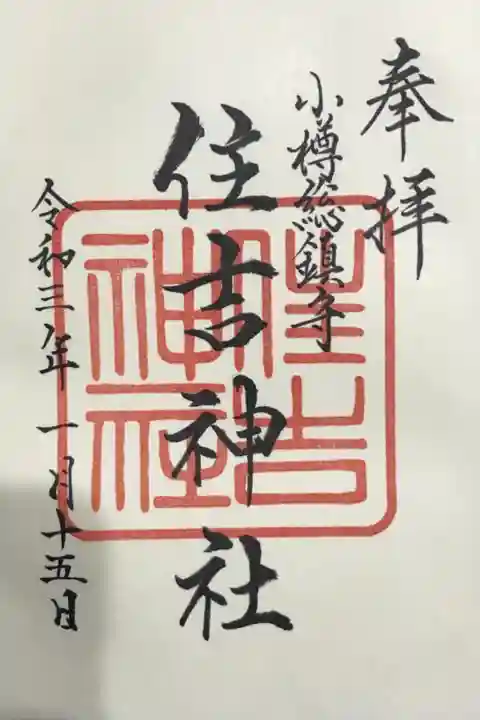 奉拝
小樽総鎮守
住吉神社
令和三年 一月十五日
住吉
神社